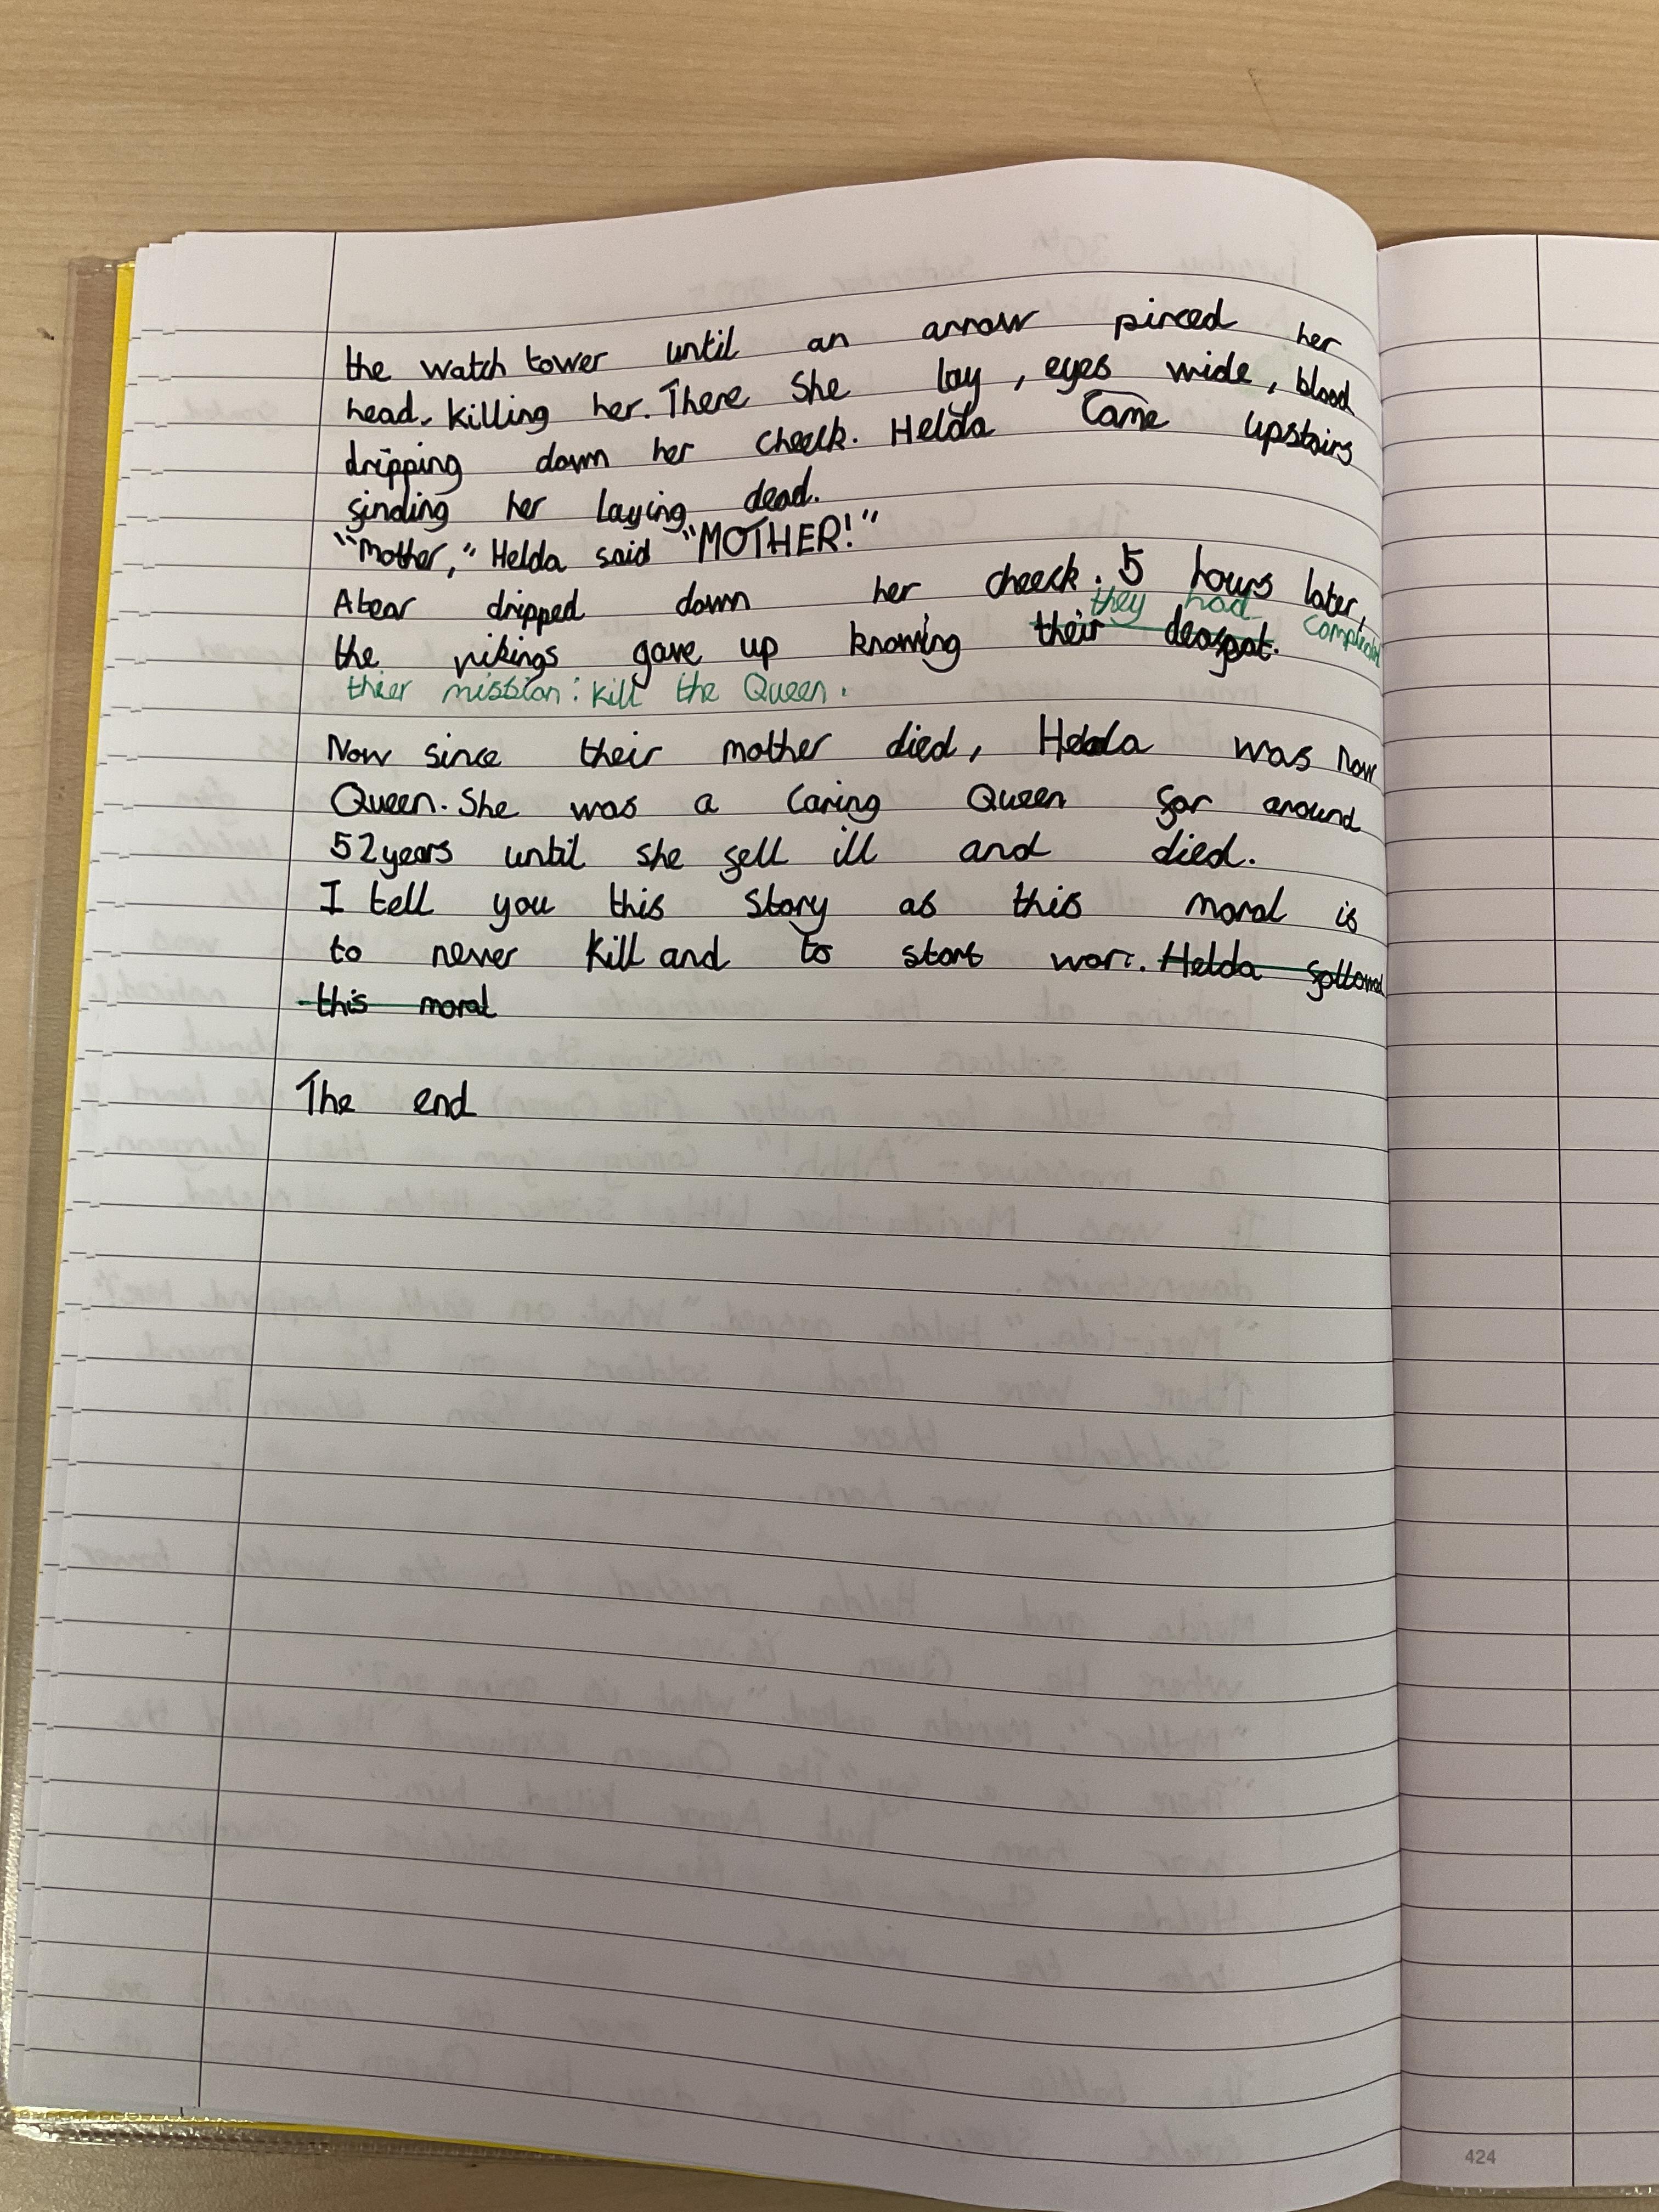 the watch tower until an arrow pirced her
head, killing her. There She lay, eyes wide, blood
dripping down her cheek. Helda Came upstairs
finding her laying dead.
"Mother," Helda said "MOTHER!"
A tear dripped down her cheeck. 5 hours later,
they had completed
the vikings gave up knowing their
thier mission: kill the Queen.
Now since their mother died, Helda was now
Queen. She was a Caring Queen for around
52 years until she fell ill and died.
I tell you this story as this moral is
to never kill and to start war. Helda followed
this moral
The end
424